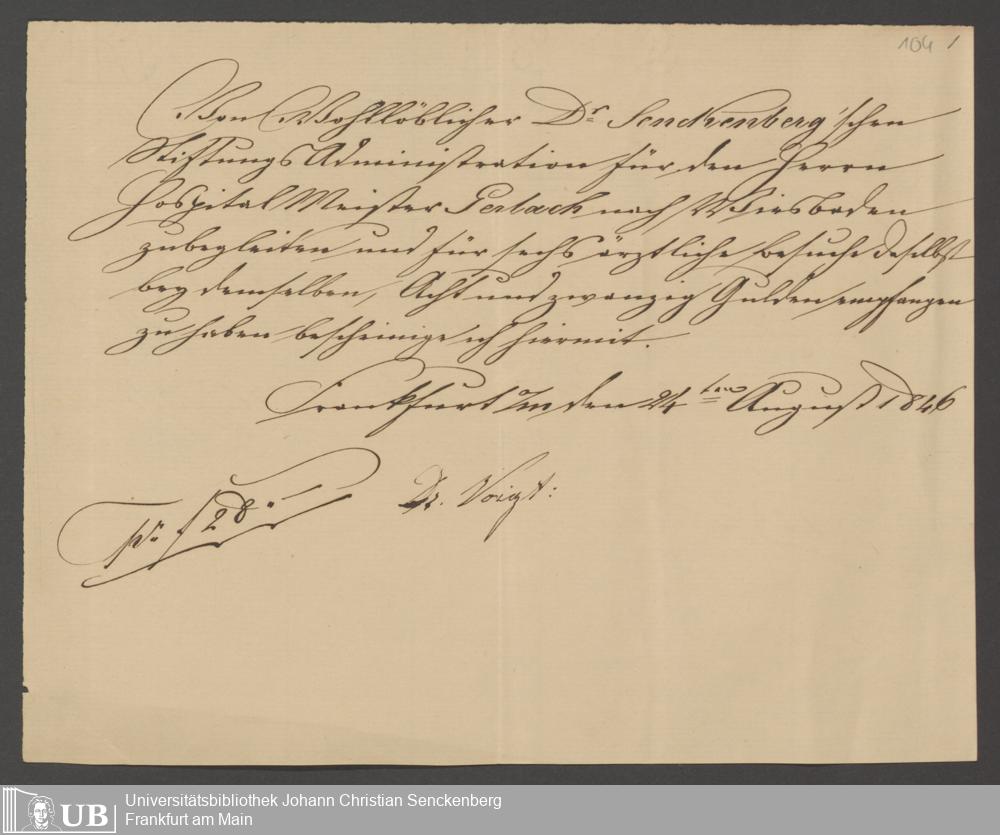 104 1
Von Wohllöblicher Dr. Senckenberg'schen
Stiftungs Administration für den Herrn
Hospital Meister Gerlach nach Wiesbaden
zubegleiten und für sechs ärztliche Besuche daselbst
bey demselben, Acht und zwanzig Gulden empfangen
zu haben bescheinige ich hiermit.
Frankfurt a/m den 24ten August 1846
pr. f 28.–
Dr. Voigt:
UB
Universitätsbibliothek Johann Christian Senckenberg
Frankfurt am Main